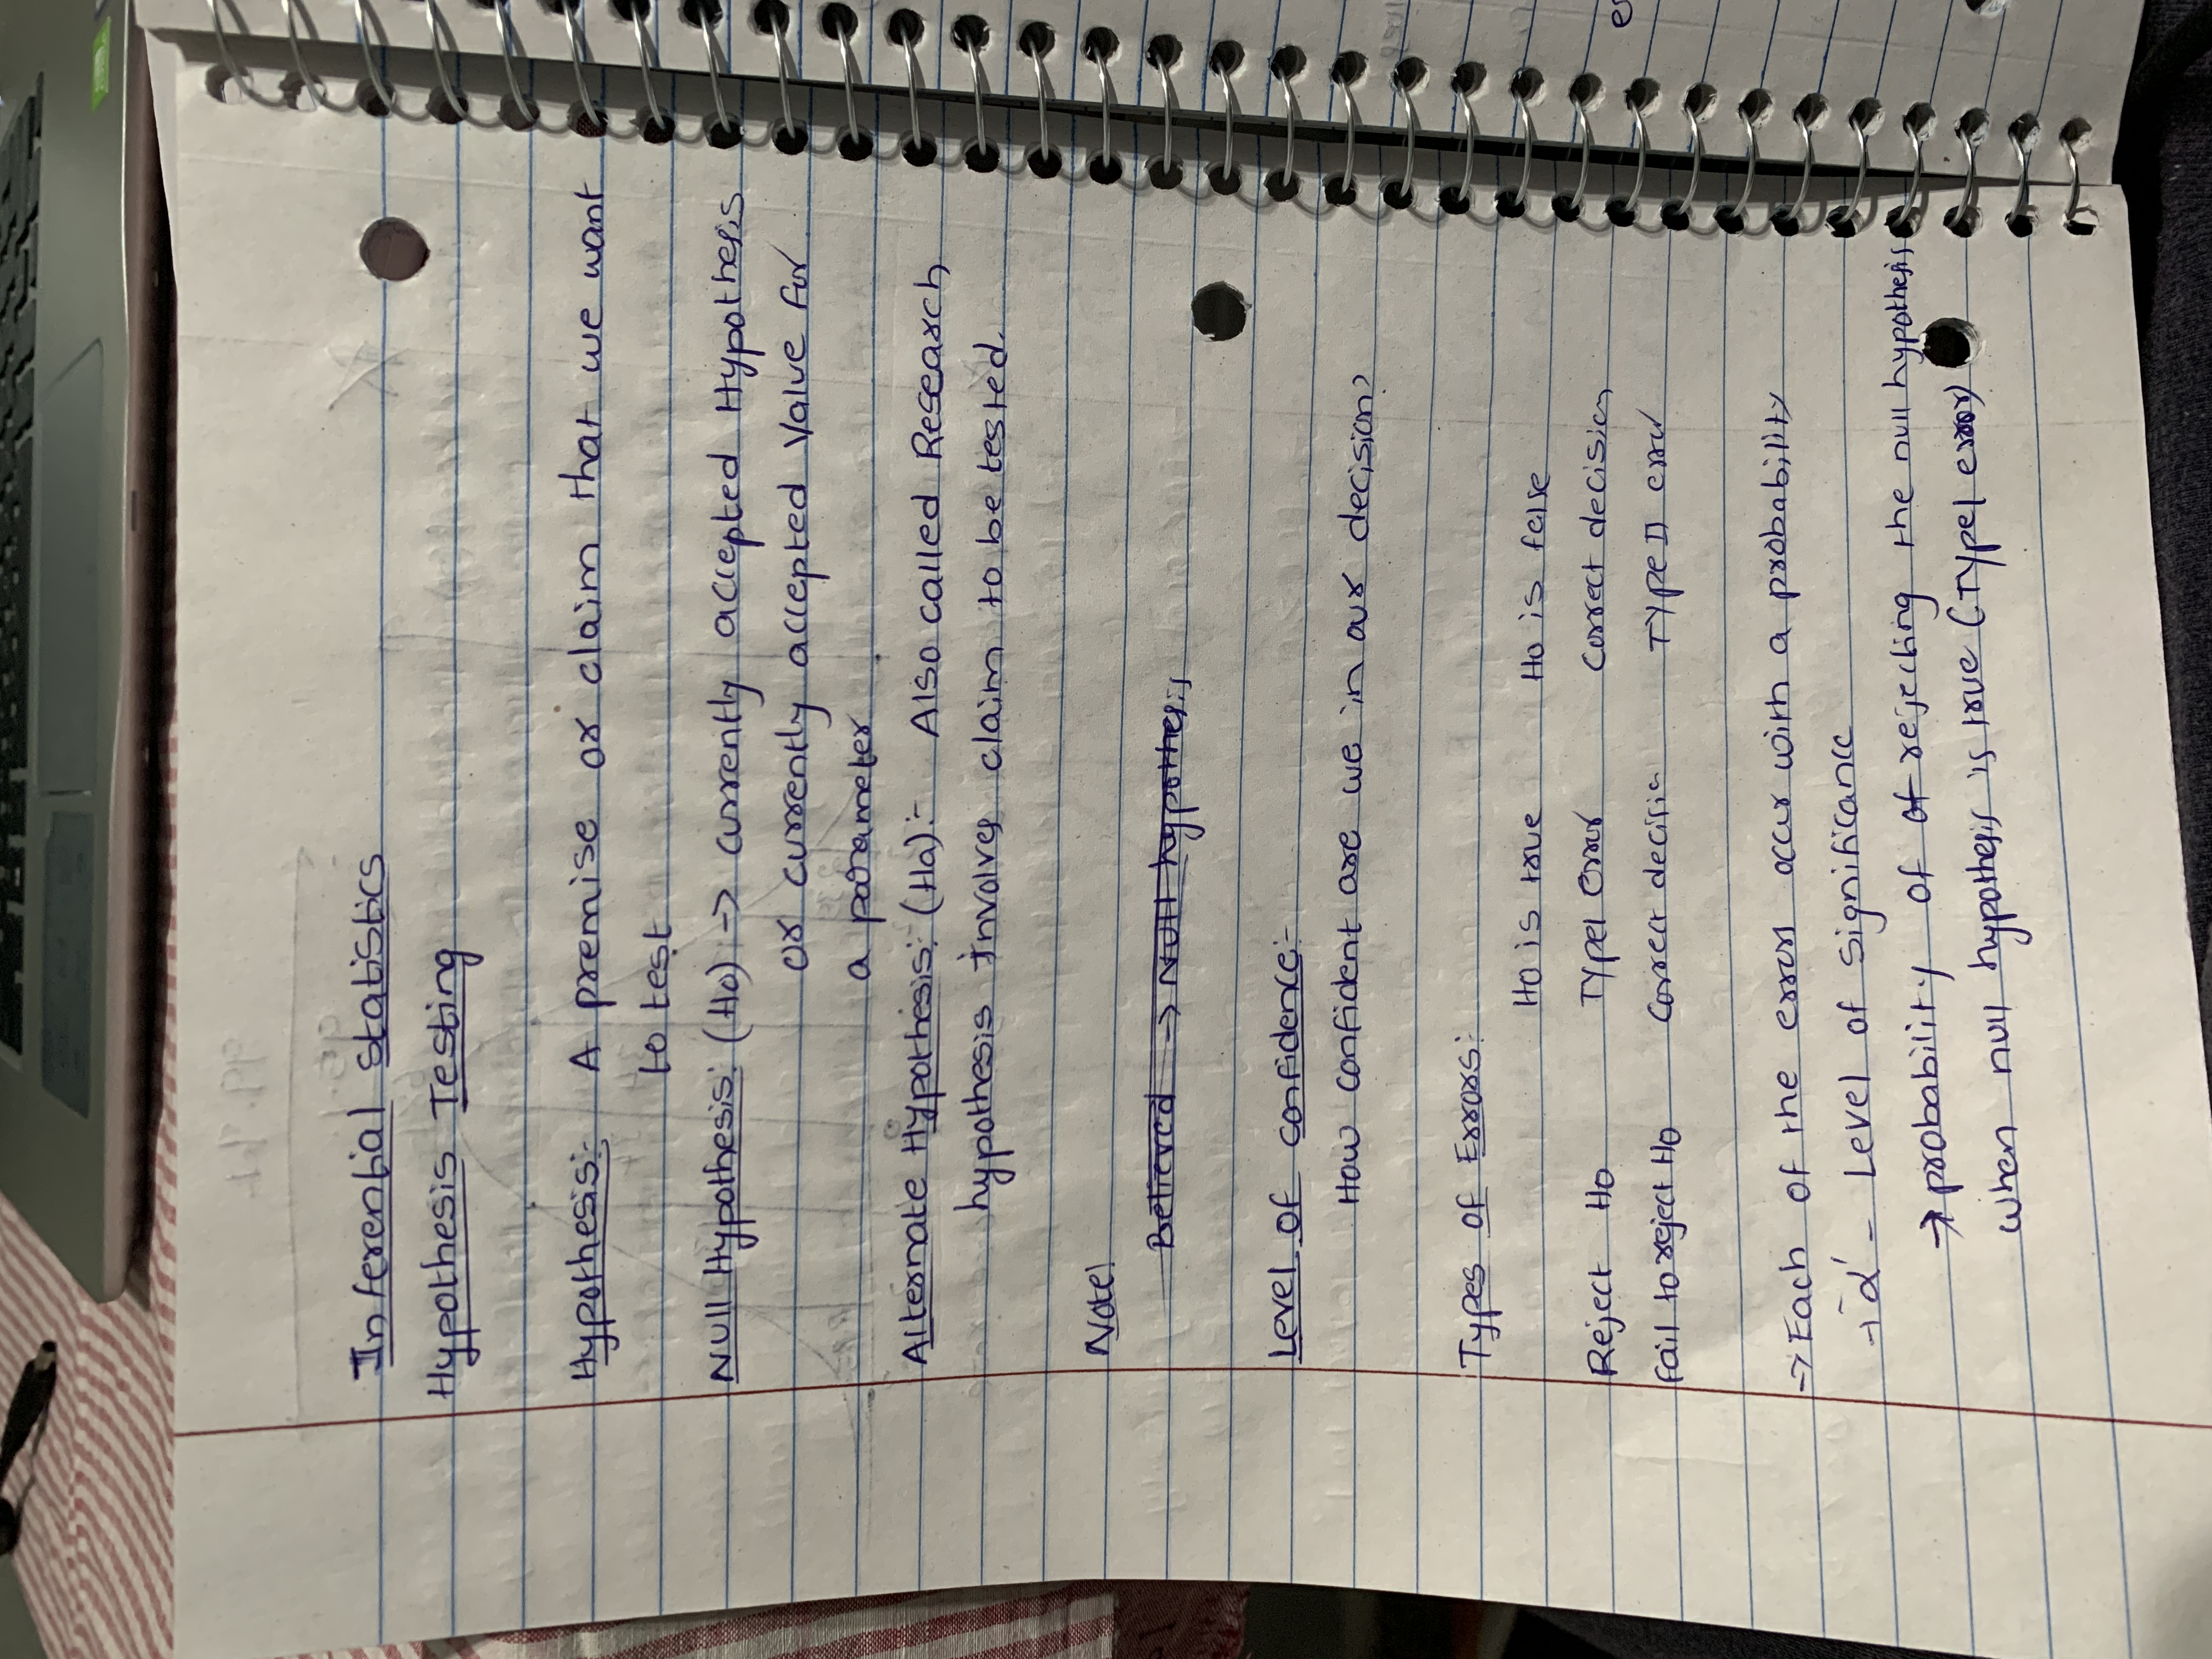 Inferential statistics
Hypothesis Testing
Hypothesis:- A premise or claim that we want
to test
Null Hypothesis: (Ho) -> currently accepted Hypothesis
or currently accepted Value for
a parameter
Alternate Hypothesis:- (Ha):- Also called Research
hypothesis involves claim to be tested.
Note!
Believed -> Null hypothesis
Level of confidence:-
How confident are we in our decision?
Types of Errors:
Ho is true Ho is false
Reject Ho Type1 error Correct decision
fail to reject Ho Correct decision Type II error
-> Each of the errors occur with a probability
-> 'α' - Level of significance
-> probability of of rejecting the null hypothesis
when null hypothesis is true (Type1 error)